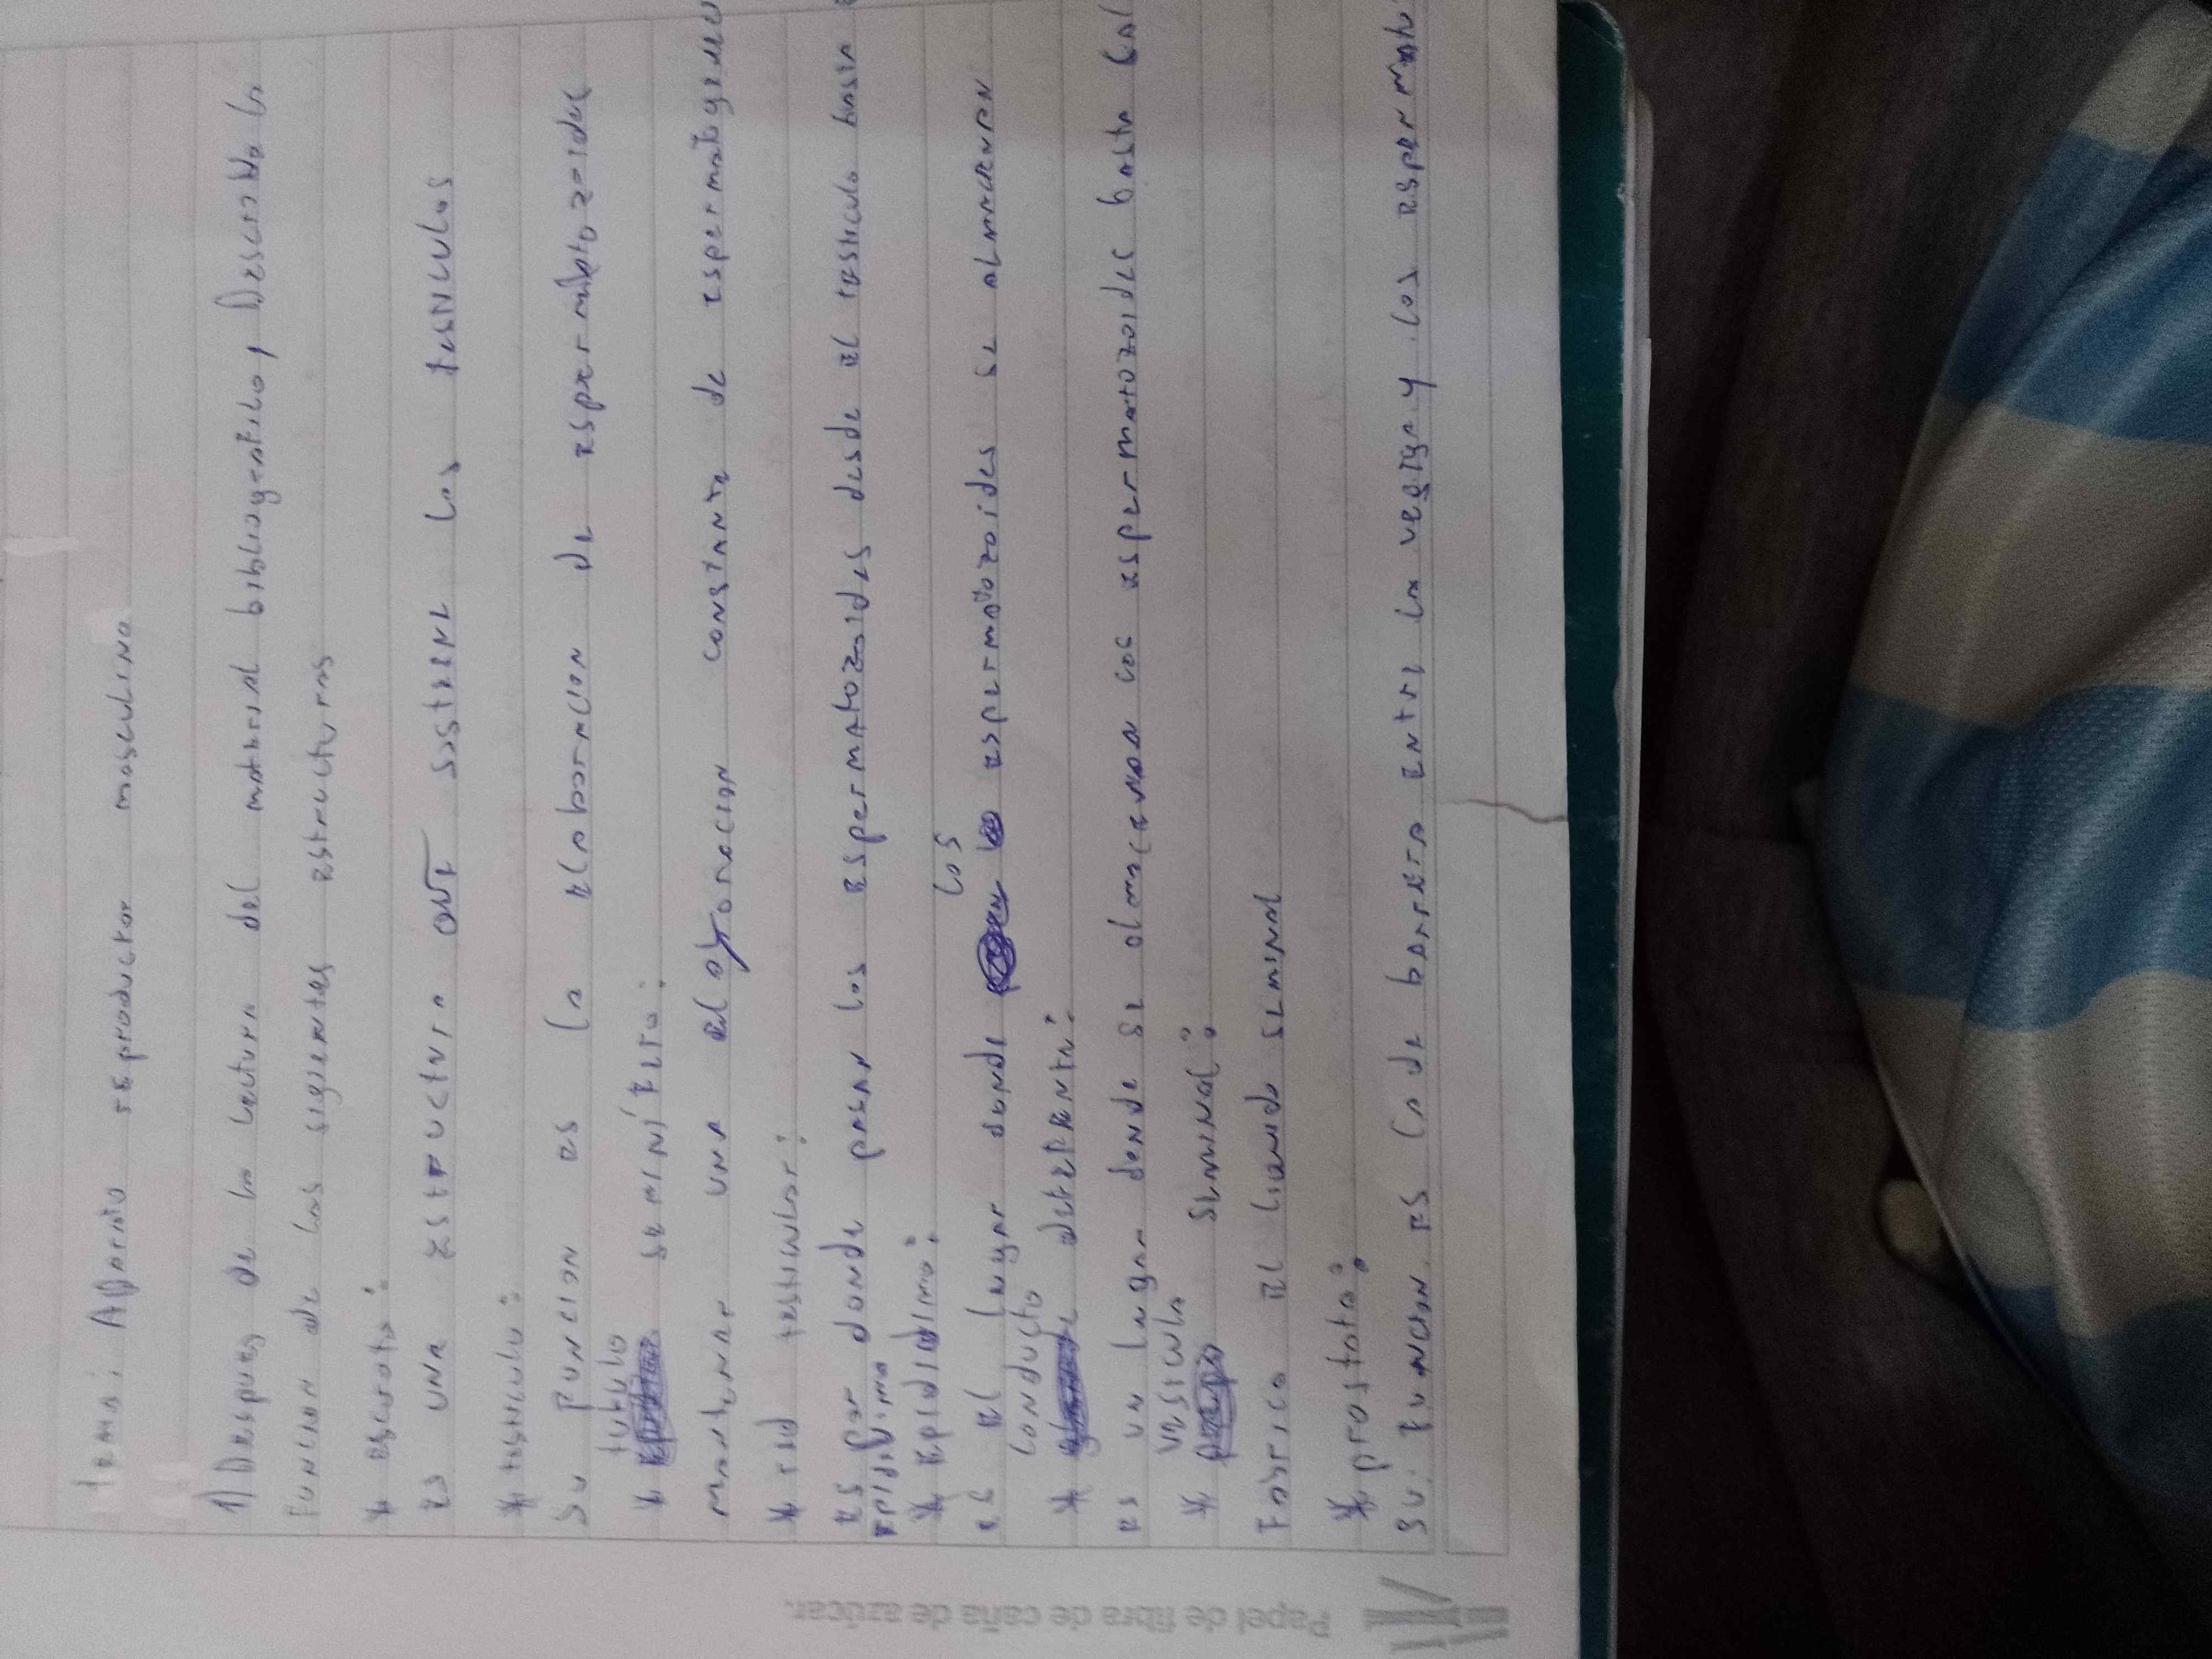 Tema: Aparato reproductor masculino
1) Despues de la lectura del material bibliografico, Describa la
Funcion de las sigientes estructuras
* escroto:
Es una estructura que sostiene los testiculos
* testiculo:
Su funcion es la elaboracion de espermatozoides
tubulo
* seminífero:
mantener una constante de
* red testicular:
Es por donde pasan los espermatozoides desde el testiculo hasta
epididimo
* epididimo:
los
es el lugar donde espermatozoides se almacenan
conducto
* deferente:
es un lugar donde se almacenan los espermatozoides hasta
vesicula
* seminal:
Fabrica el liquido seminal
* prostata:
Su funcion es la de barrera entre la vegiga y los
Papel de fibra de caña de azúcar.